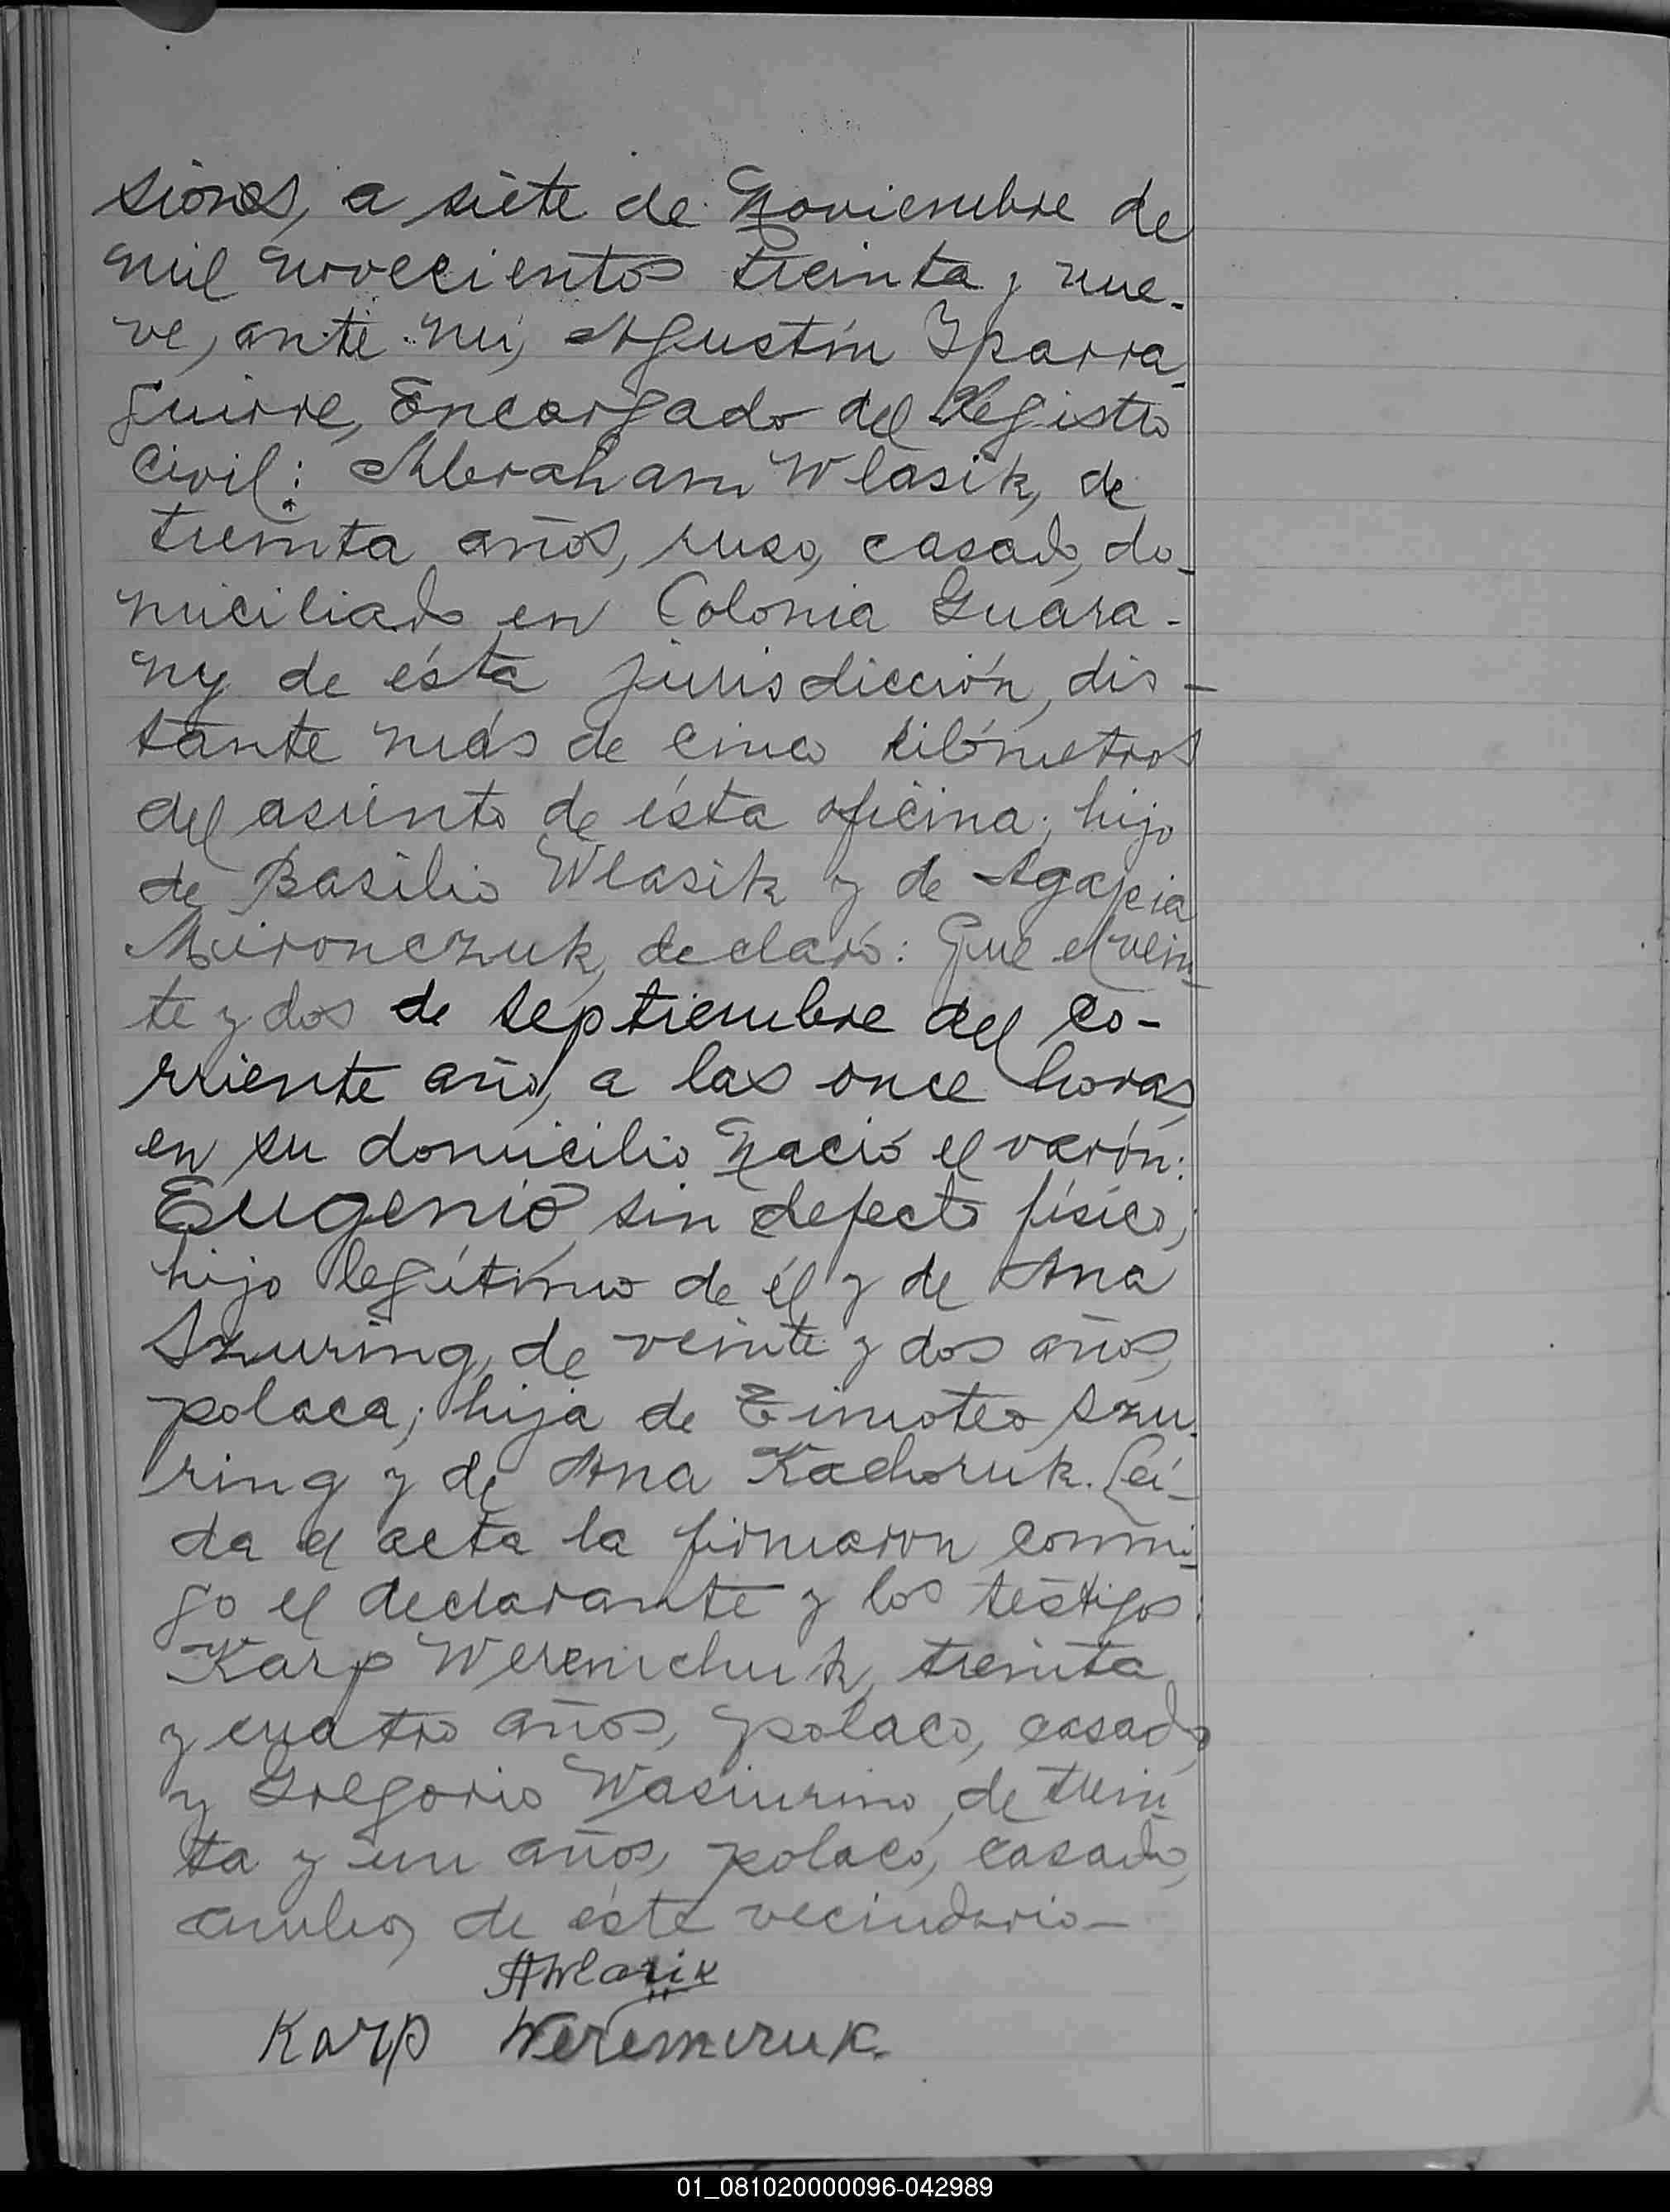 siones, a siete de Noviembre de
mil novecientos treinta y nue-
ve, ante mí, Agustín Yparra-
guirre, Encargado del Registro
Civil: Abraham Wlasik, de
treinta años, ruso, casado, do-
miciliado en Colonia Guara-
ny de ésta jurisdicción, dis-
tante más de cinco kilómetros
del asiento de ésta oficina; hijo
de Basilio Wlasik y de Agapia
Mironczuk, declaró: Que el vein-
te y dos de septiembre del co-
rriente año, a las once horas,
en su domicilio nació el varón:
Eugenio, sin defecto físico,
hijo legítimo de él y de Ana
Szuring, de veinte y dos años,
polaca; hija de Timoteo Szu-
ring y de Ana Kachoruk. Leí-
da el acta la firmaron conmi-
go el declarante y los testigos:
Karp Weremchuk, treinta
y cuatro años, polaco, casado,
y Gregorio Wasiurino, de trein-
ta y un años, polaco, casado,
ambos de éste vecindario-
AWlasik
Karp Weremczuk.
01_081020000096-042989